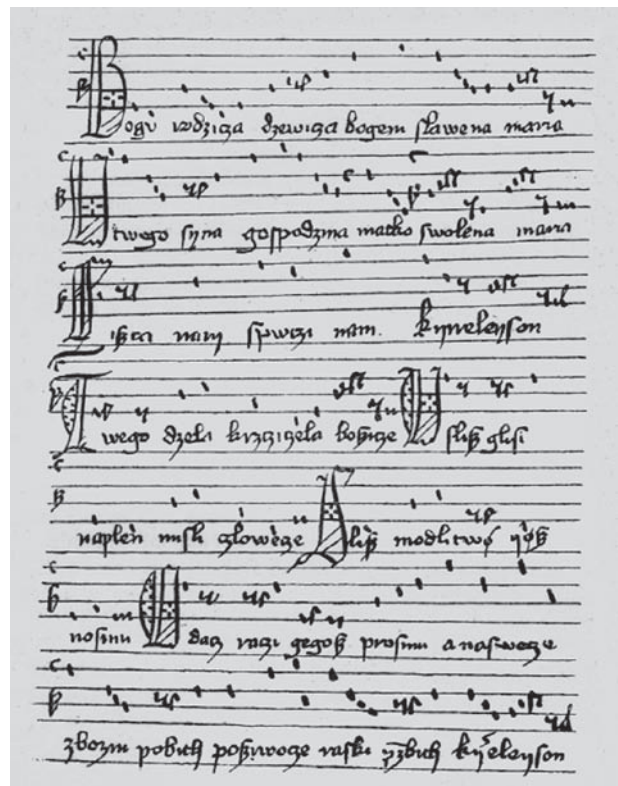 Bogv rodzicza dzewicza bogem slawena maria
U twego syna gospodzina matko swolena maria
nam spwczi nam. Kyrieleyson
Twego dzela krzciczela bozicze Uslisß glosi
naplen misli czlowecze Slisß modlitwo yosß
nosimi Odacz raczi gegosß prosimi a naswecze
zbozni pobith posßiwocze raski kyrieleyson